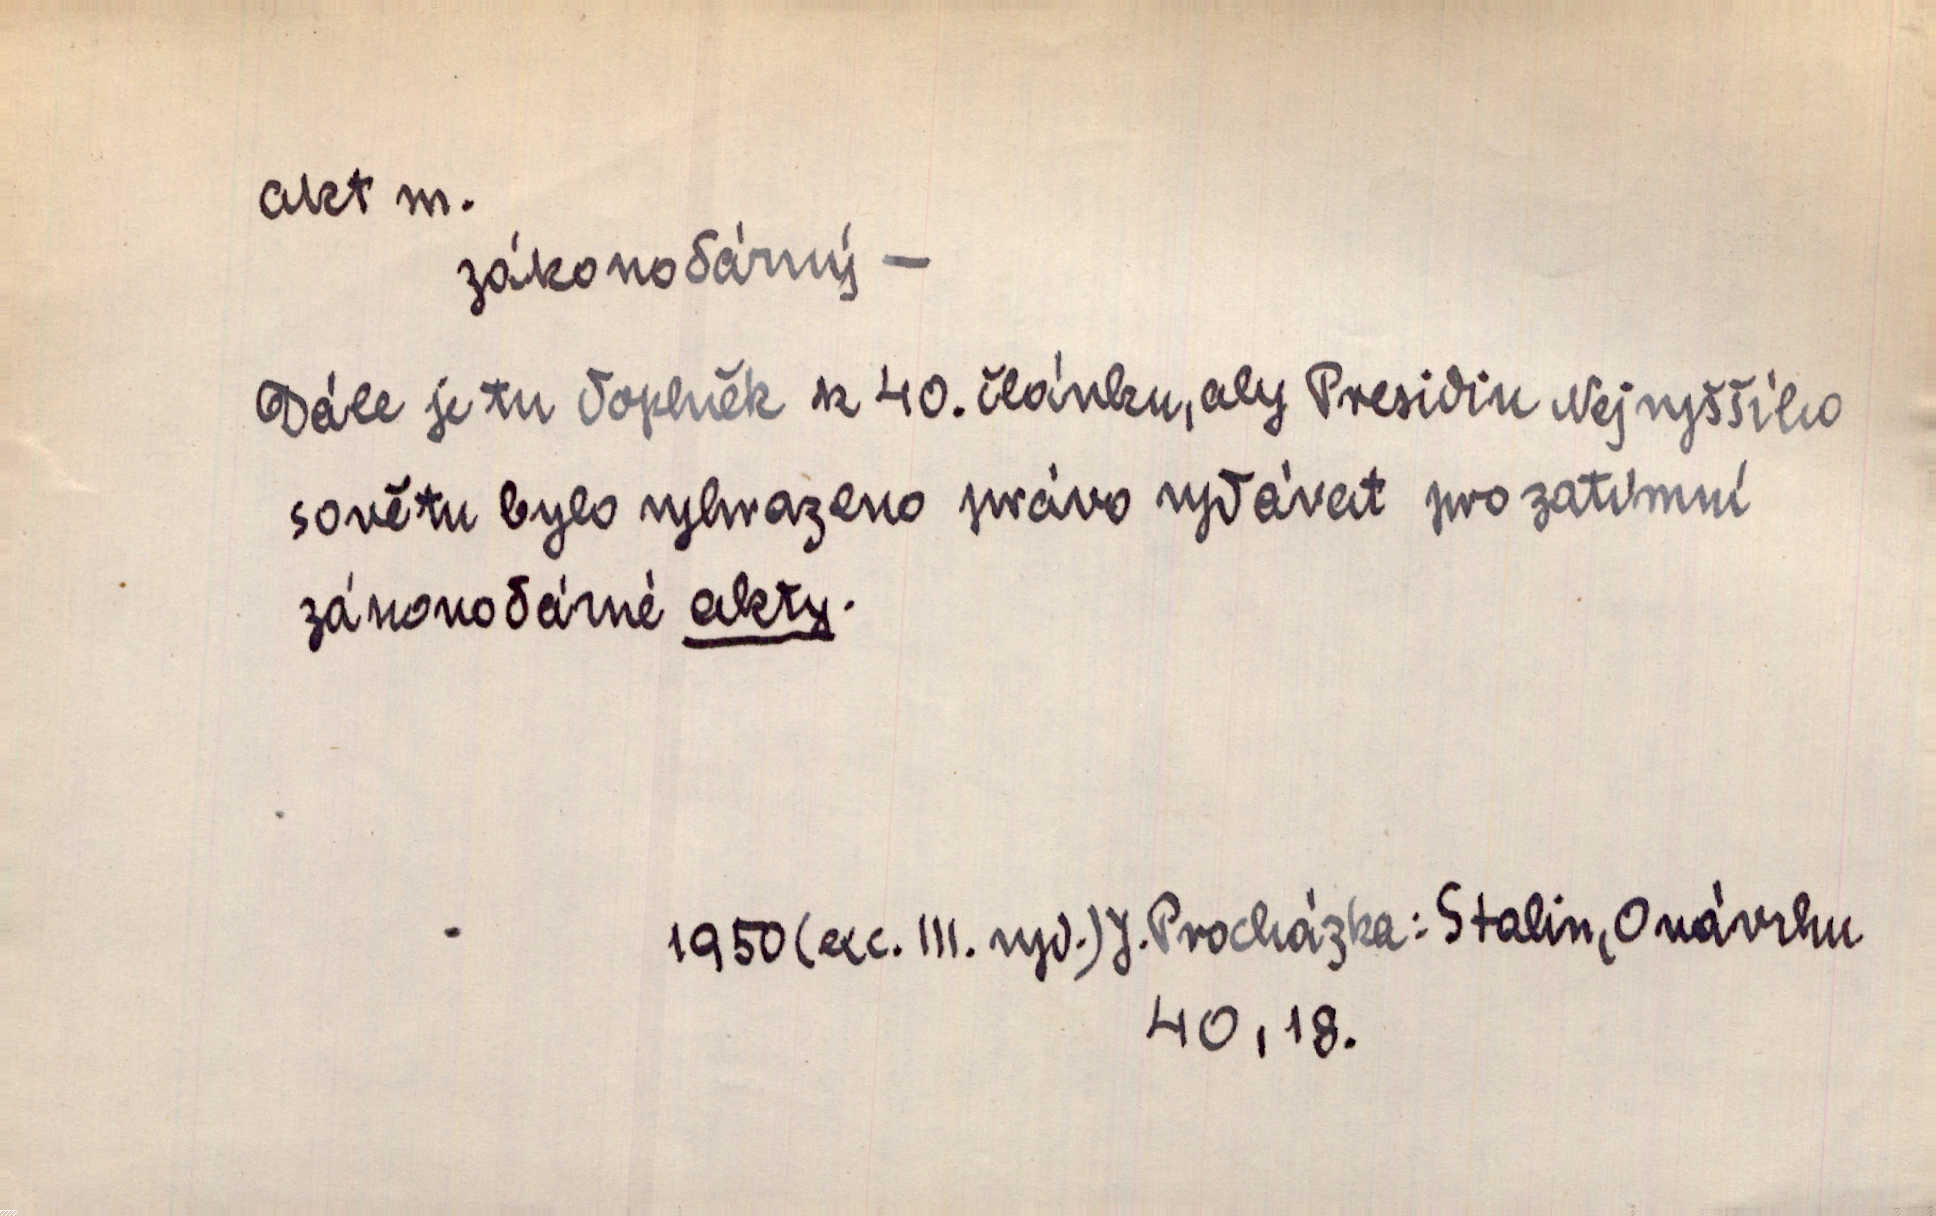 akt m.
zákonodárný –
Dále je tu doplněk k 40. článku, aby Presidiu Nejvyššího
sovětu bylo vyhrazeno právo vydávat prozatímní
zákonodárné akty.
1950 (exc. III. vyd.) J. Procházka: Stalin, O návrhu
40, 18.